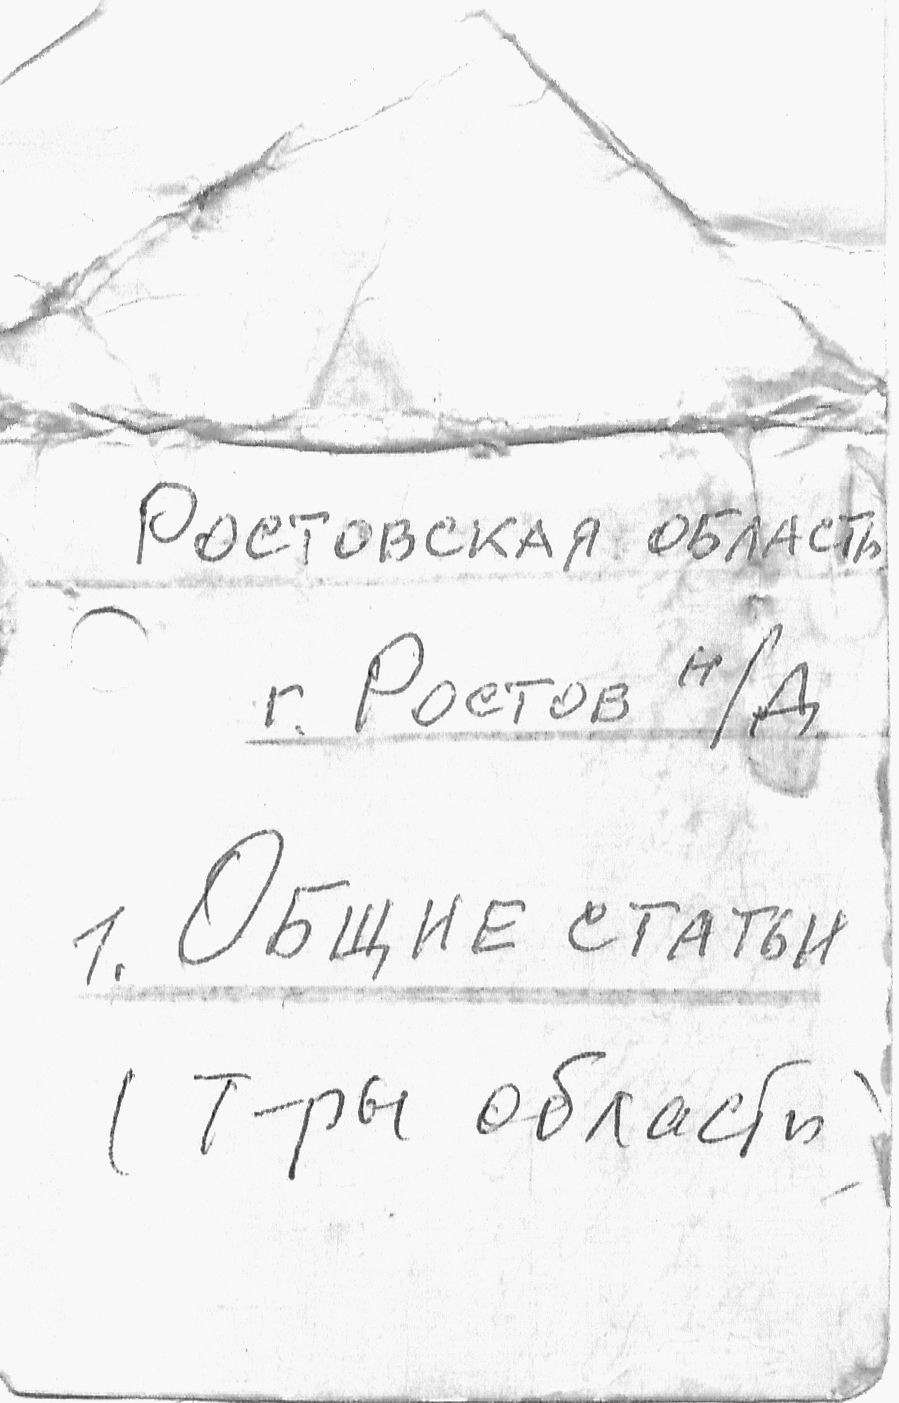 Ростовская область
г. Ростов н/Д
1. Общие статьи
(т-ры области)